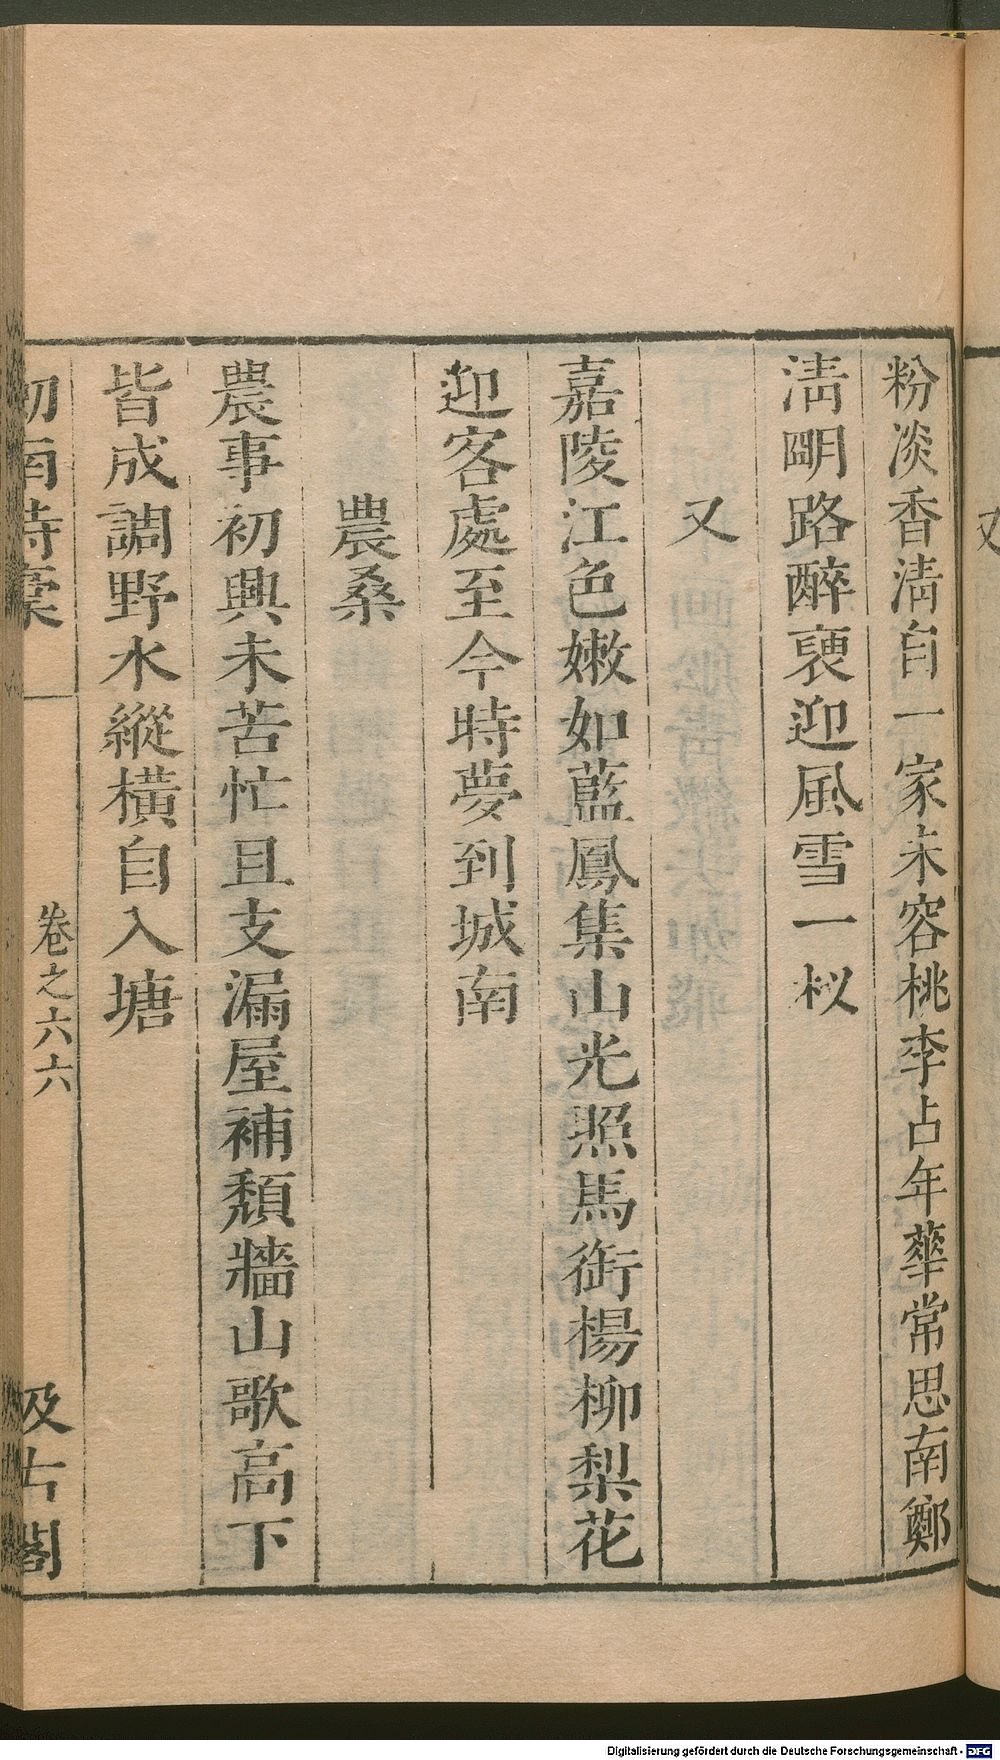 粉淡香淸自一家未容桃李占年華常思南鄭
淸明路醉裛迎風雪一杈
又
嘉陵江色嫩如藍鳳集山光照馬銜楊柳梨花
迎客處至今時夢到城南
農桑
農事初興未苦忙且支漏屋補頹牆山歌高下
皆成調野水縱橫自入塘
劒南詩稾
卷之六六
汲古閣
Digitalisierung gefördert durch die Deutsche Forschungsgemeinschaft - DFG